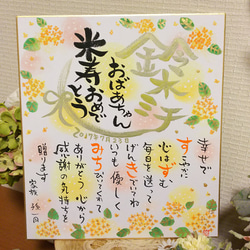 鈴木
おばあちゃん
米寿おめでとう
2017年7月23日
幸せで
すてきだ
心はずむ
毎日を送って
げんきでいてね
いつも優しく
みちびいてくれて
ありがとう 心から
感謝の気持ちを
贈ります
家族 孫一同